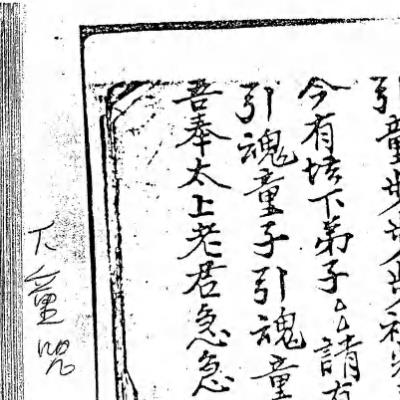 引童步步
今有坛下弟子厶厶請
引魂童子引魂童
吾奉太上老君急急
下童咒